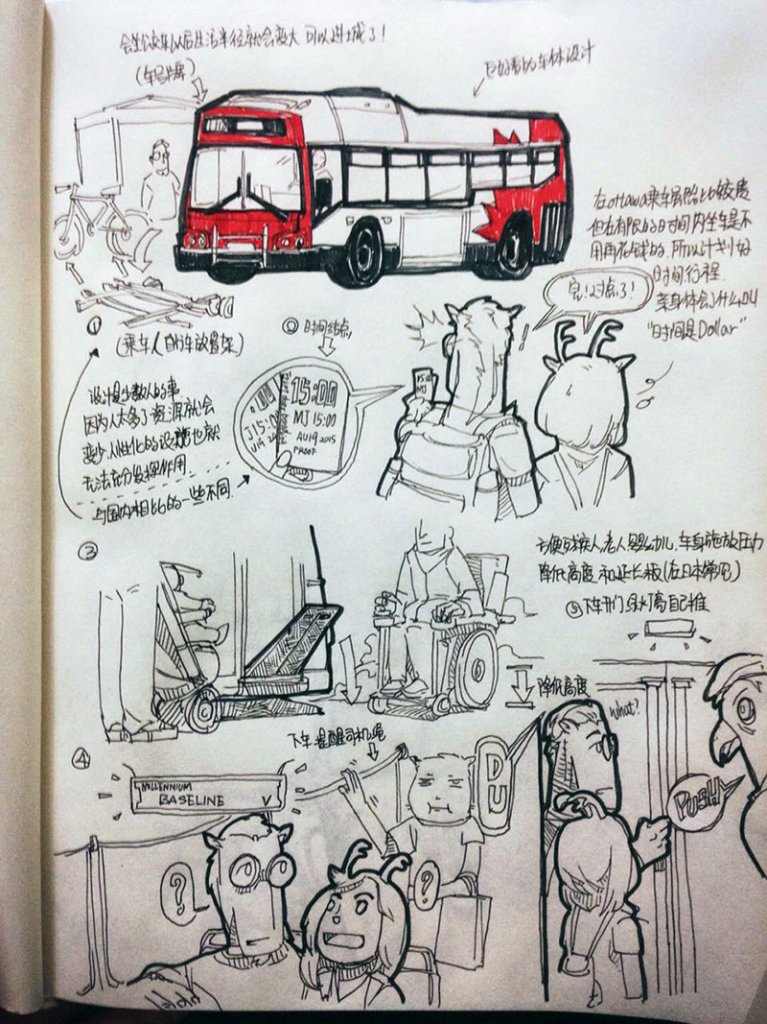 会坐公交车以后生活半径就会变大 可以进城了!
(车号牌)
好看的车体设计
在ottawa乘车虽然比较贵
但在有限的时间内坐车是不
用再花钱的.所以计划好
时间行程.
亲身体会了什么叫
"时间是Dollar"
完!过点了!
!
①
(乘车人自行车放置架)
② 时间结点
15:00
MJ 15:00
AU19 2015
PROOF
J15:0
U19 2
15:0
MJ
设计是少数人的事
因为人太多了资源就会
变少.人性化的设施也就
无法充分发挥作用.
与国内相比的一些不同.
③
方便残疾人.老人.婴幼儿.车身施放压力
降低高度.和延长板(在日本常见)
降低高度
⑤下车开门绿灯亮自己推
what?
PUSH
④
下车提醒司机绳
MILLENNIUM
BASELINE V
DU
?
?